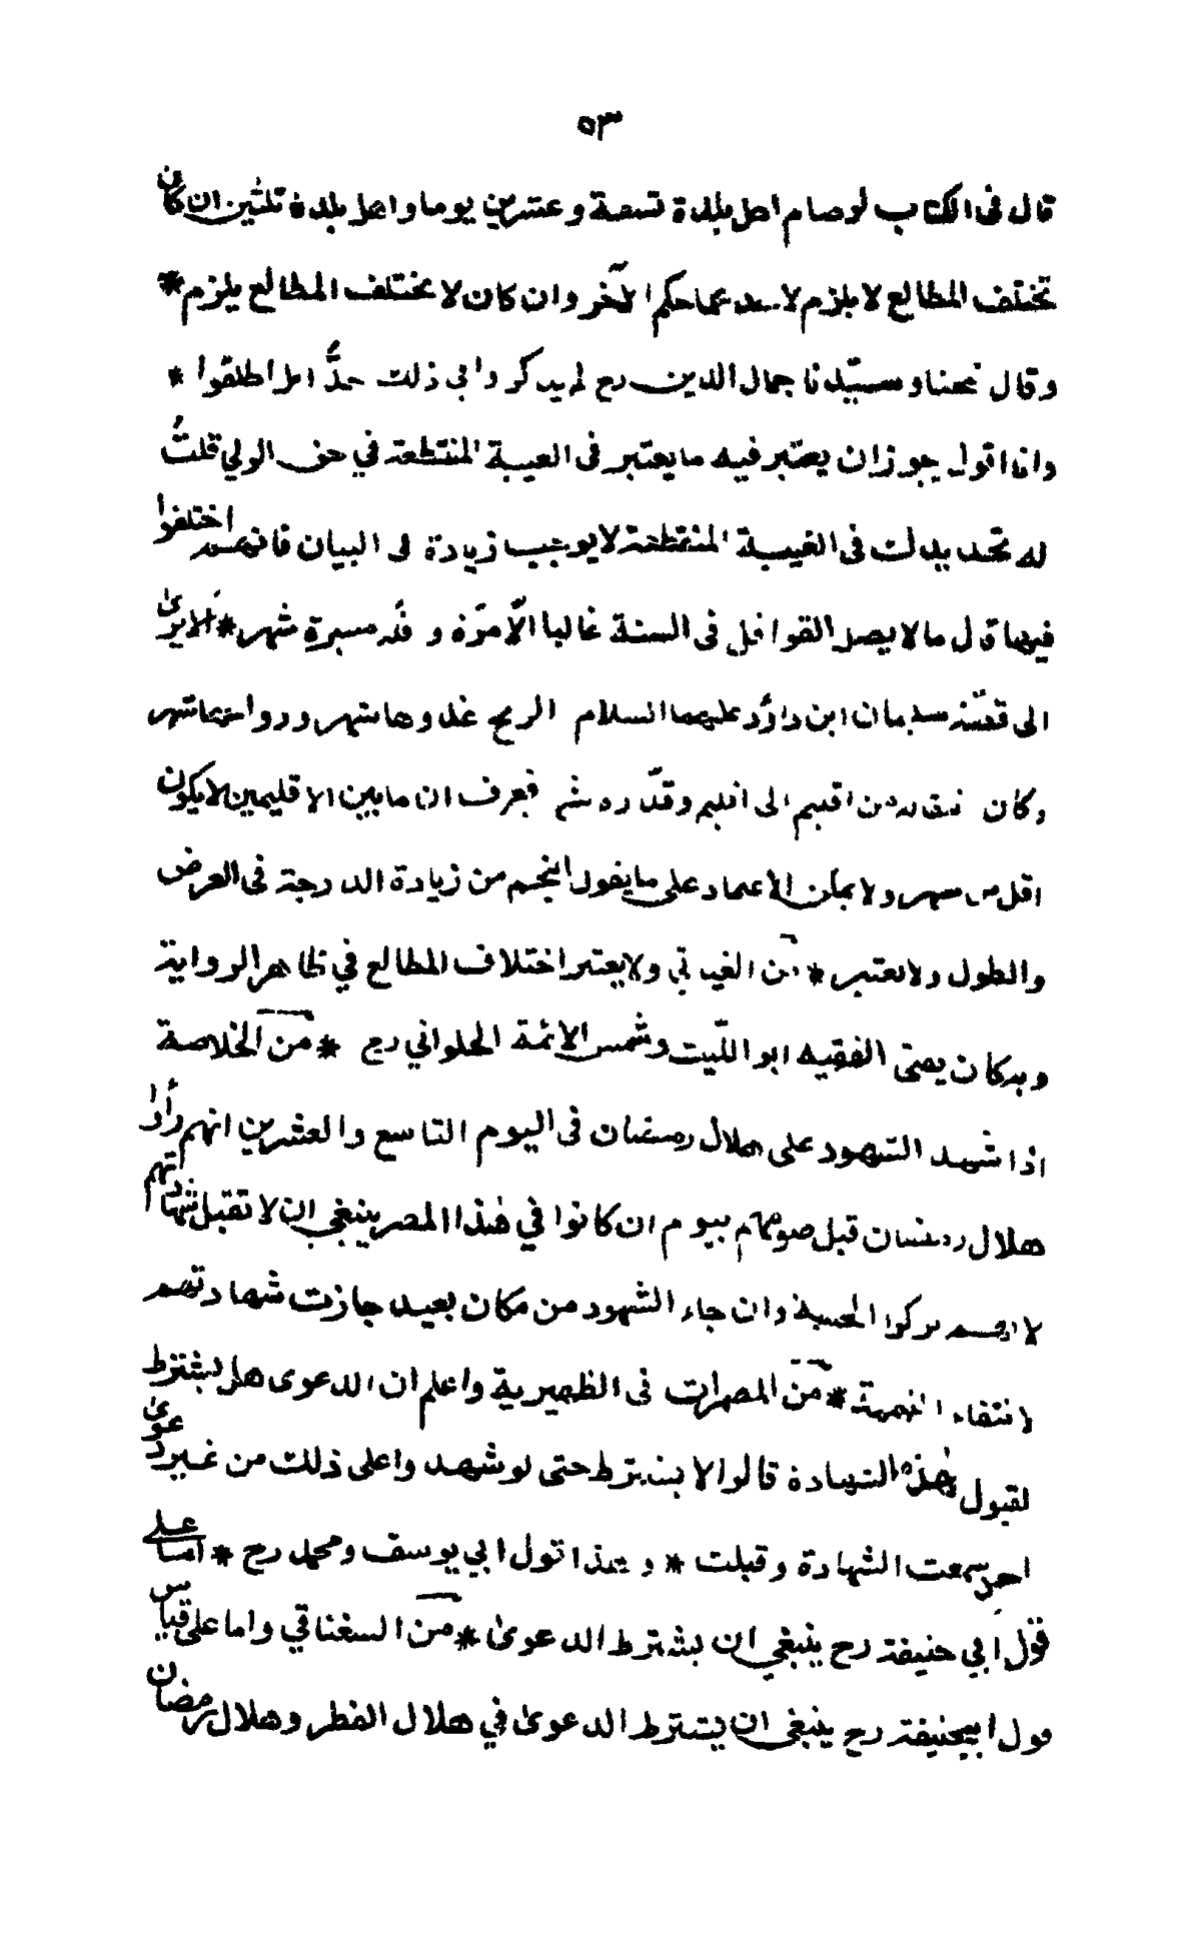 ٥٣
قال فى الكتاب لو صام اهل بلدة تسعة وعشرين يوما واهل بلدة ثلثين ان كان
تختلف المطالع لا يلزم لاحديهما حكم الآخر وان كان لا يختلف المطالع يلزم *
وقال شيخنا وسيّدنا جمال الدين رح لم يذكروا في ذلك حدًّا بل اطلقوا *
وانا اقول يجوز ان يعتبر فيه ما يعتبر فى الغيبة المنقطعة في حق الولي قلتُ
له تحديدك فى الغيبة المنقطعة لا يوجب زيادة فى البيان فانهم اختلفوا
فيها قال ما لا يصل القوافل فى السنة غالبا الّا مرّة و مسيرة شهر * الا يرىٰ
الى قصّة سليمان ابن داؤد عليهما السلام الريح غدوها شهر ورواحها شهر
وكان انتقاله من اقليم الى اقليم وقدّره فيعرف ان ما بين الاقليمين لا يكون
اقل من شهر ولا يمكن الاعتماد على ما يقول المنجم من زيادة الدرجة فى العرض
والطول ولا يعتبر * من الغياثي ولا يعتبر اختلاف المطالع في ظاهر الرواية
وبه كان يفتى الفقيه ابو اللّيث وشمس الائمة الحلواني رح * من الخلاصة
اذا شهد الشهود على هلال رمضان فى اليوم التاسع والعشرين انهم رأوا
هلال رمضان قبل صومهم بيوم ان كانوا في هٰذا المصر ينبغي ان لا تقبل شهادتهم
لانهم تركوا الحسبة وان جاء الشهود من مكان بعيد جازت شهادتهم
لانتفاء التهمة * من المضمرات فى الظهيرية واعلم ان الدعوى هل يشترط
لقبول هٰذه الشهادة قالوا لا يشترط حتى لو شهدوا على ذلك من غير دعوىٰ
احد سمعت الشهادة وقبلت * وهذا قول ابي يوسف ومحمد رح * اما على
قول ابي حنيفة رح ينبغي ان يشترط الدعوىٰ * من السغناقي واما على قياس
قول ابيحنيفة رح ينبغي ان يشترط الدعوىٰ في هلال الفطر وهلال رمضان